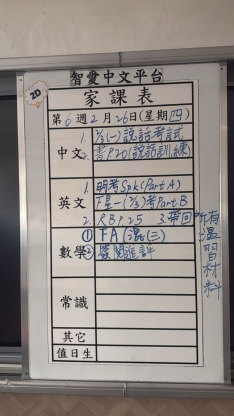 2D
智愛中文平台
家課表
第6週2月26日(星期四)
中文
1. 2/3(一)說話考試
2. 書P.20(說話訓練)
英文
1. 明考Spk(Part A)
下星一(2/3)考Part B
2. RB P.25 3. 帶回所有溫習材料
數學
① TA(混)(三)
②
常識
其它
值日生